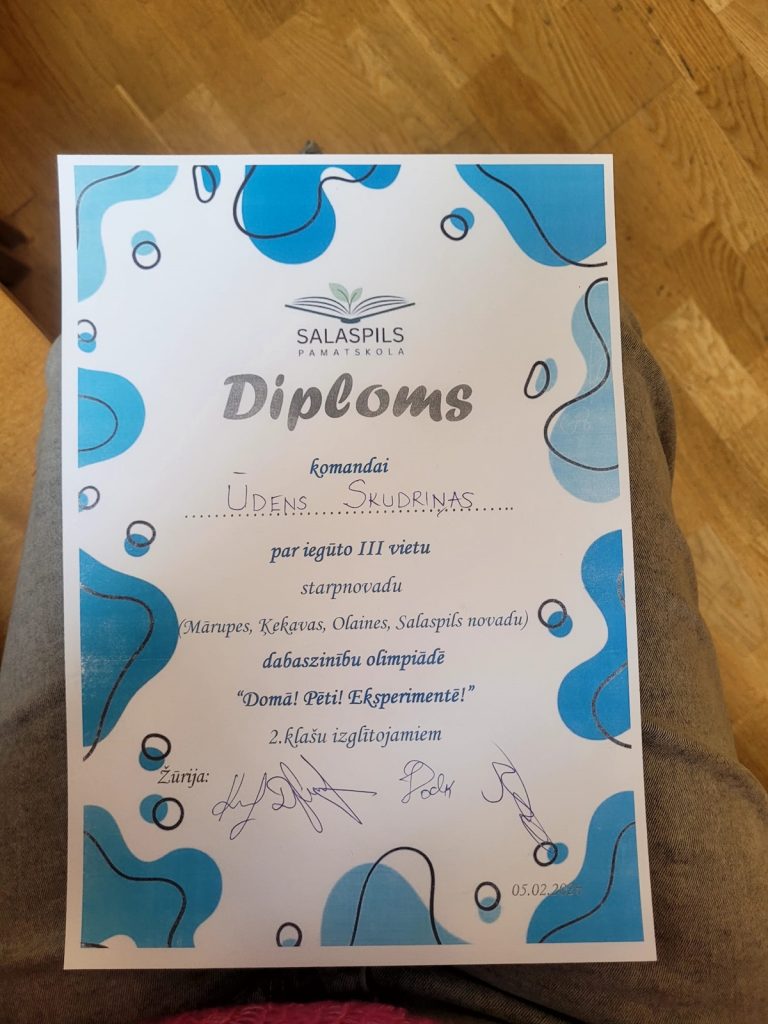 SALASPILS
PAMATSKOLA
Diploms
komandai
ŪDENS SKUDRIŅAS
par iegūto III vietu
starpnovadu
(Mārupes, Ķekavas, Olaines, Salaspils novadu)
dabaszinību olimpiādē
“Domā! Pēti! Eksperimentē!”
2.klašu izglītojamiem
Žūrija: